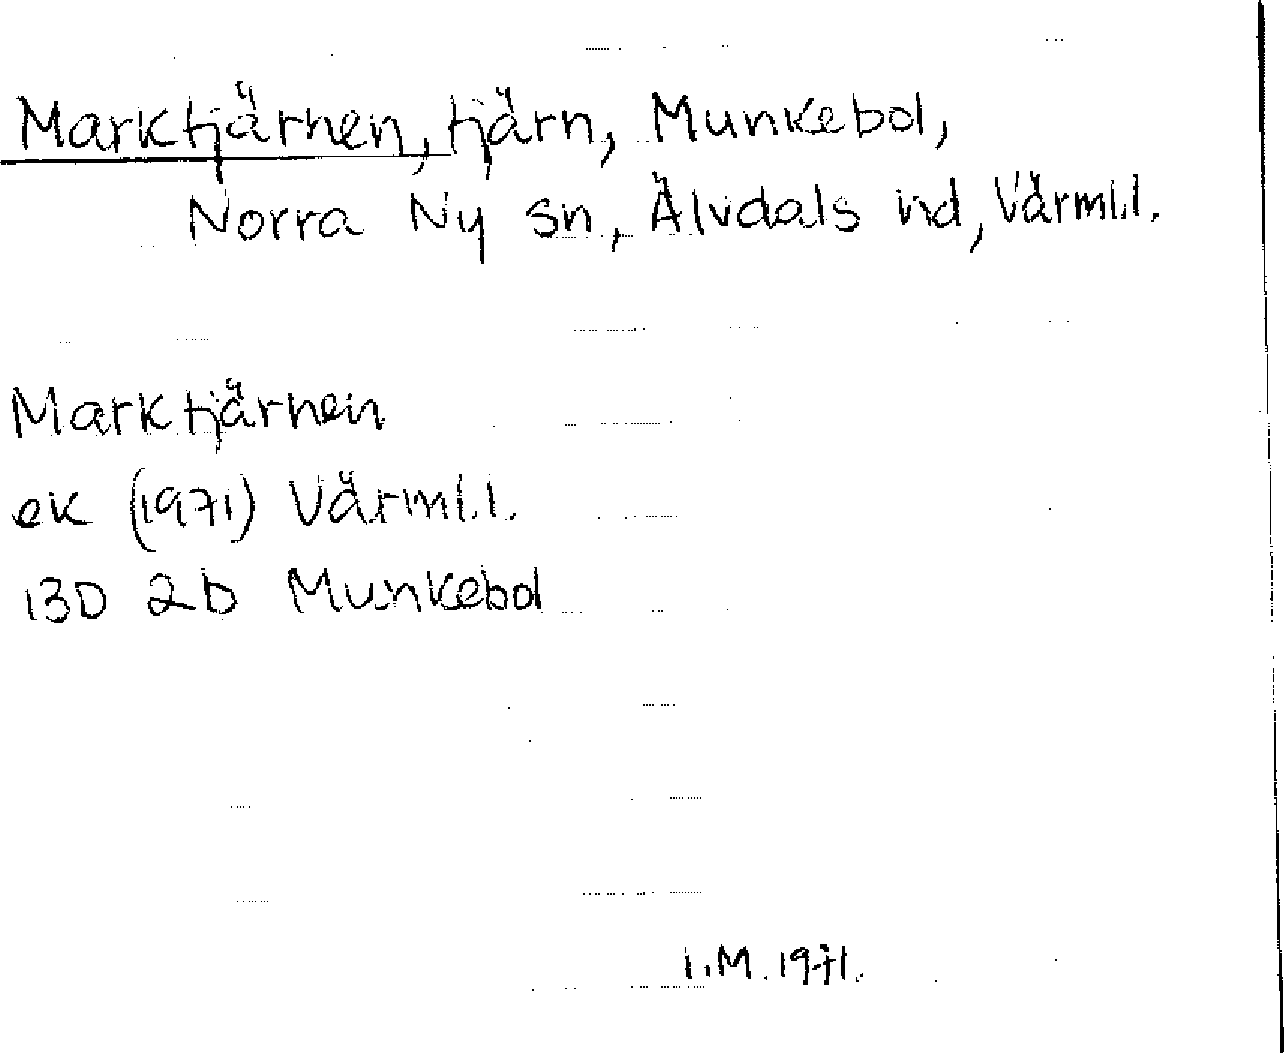 Marktjärnen, tjärn, Munkebol,
Norra Ny sn, Älvdals hd, Värml.l.
Marktjärnen
ek (1971) Värml.l.
13D 2b Munkebol
I.M. 1971.